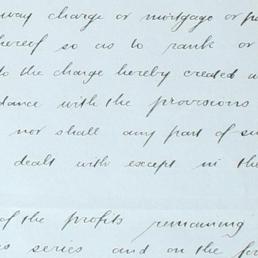 way charge or mortgage or
hereof so as to rank or
to the charge hereby created
with the provisions
nor shall any part of
dealt with except in the
of the profits remaining
series and on the